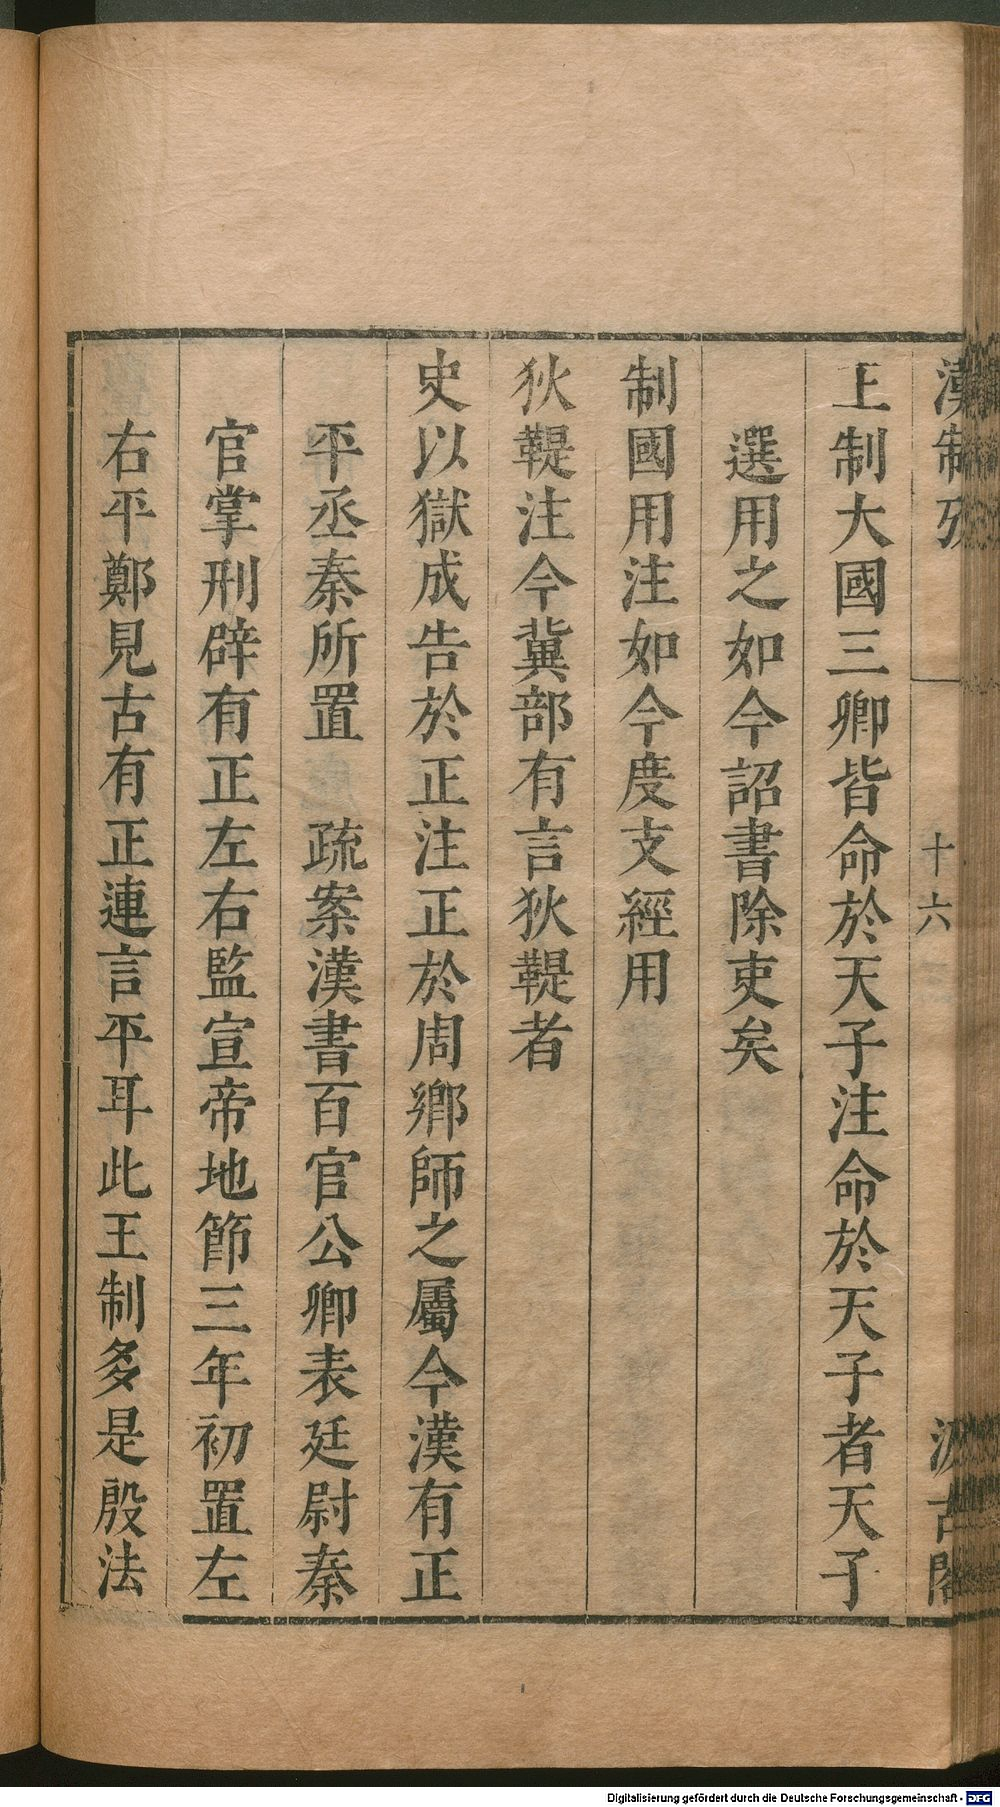 漢制攷
十六
汲古閣
上制大國三卿皆命於天子注命於天子者天子
選用之如今詔書除吏矣
制國用注如今度支經用
狄鞮注今冀部有言狄鞮者
史以獄成告於正注正於周鄉師之屬今漢有正
平丞秦所置　疏案漢書百官公卿表廷尉秦
官掌刑辟有正左右監宣帝地節三年初置左
右平鄭見古有正連言平耳此王制多是殷法
Digitalisierung gefördert durch die Deutsche Forschungsgemeinschaft - DFG